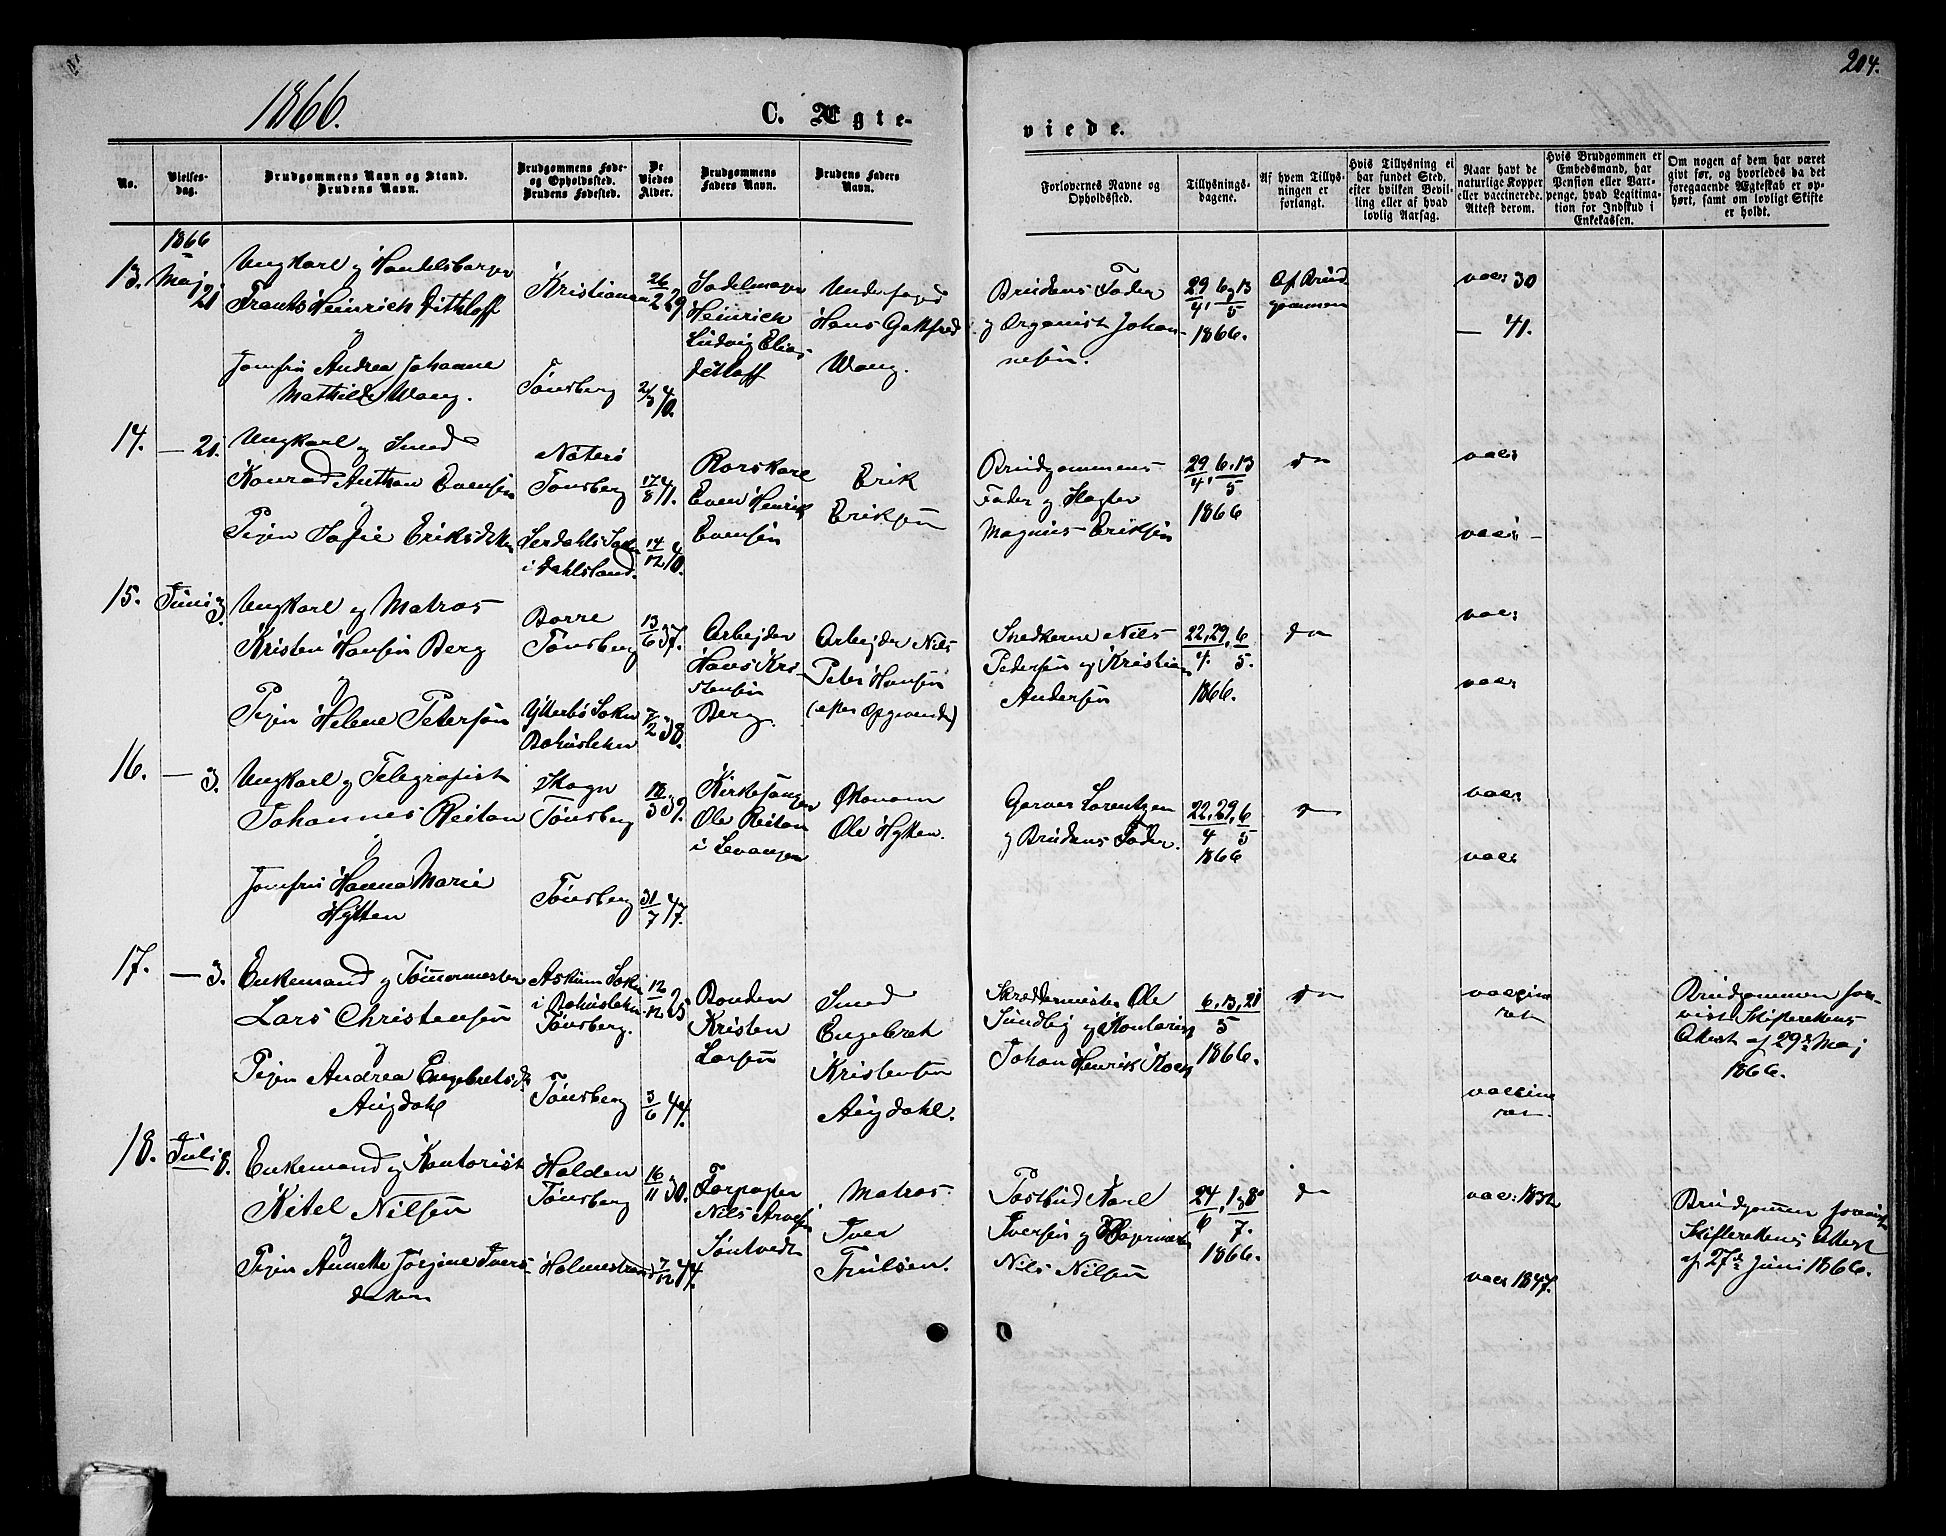 204.
1866.
C. Ægte-
viede.
No.
Vielses-
dag.
Brudgommens Navn og Stand.
Brudens Navn.
Brudgommens Føde-
og Opholdssted.
Brudens Fødested.
De
Viedes
Alder.
Brudgommens
Faders Navn.
Brudens Faders
Navn.
Forlovernes Navne og
Opholdssted.
Tillysnings-
dagene.
Af hvem Tillys-
ningen er
forlangt.
Hvis Tillysning ei
har fundet Sted,
efter hvilken Bevil-
ling eller af hvad
lovlig Aarsag.
Naar havt de
naturlige Kopper
eller vaccinerede.
Attest derom.
Hvis Brudgommen er
Embedsmand, har
Pension eller Vart-
penge, hvad Legitima-
tion for Indskud i
Enkekassen.
Om nogen af dem har været
givt før, og hvorledes da det
foregaaende Ægteskab er op-
hørt, samt om lovligt Skifte
er holdt.
1866
13.
Maj 21
Ungkarl og Handelsborger
Frants Heinrich Dithloff
og
Jomfru Andrea Johanne
Mathilde Wang.
Kristiania
Tönsberg
26/2 29
2/3 40.
Sadelmager
Heinrich
Ludvig Elias
Ditloff
Underfoged
Hans Gottfred
Wang.
Brudens Fader
og Organist Johan-
nesen.
29/4, 6 og 13/5
1866.
Af Brud
gommen
vacc 30
— 41.
14.
— 21.
Ungkarl og Smed
Konrad Anthon Evensen
og
Pigen Sofie Eriksdatter
Nöterö
Tönsberg
Serdahls Sokn
i Dahlsland.
17/8 41.
14/12 40.
Rorskarl
Even Henrik
Evensen
Erik
Eriksen
Brudgommens
Fader og Slagter
Magnus Eriksen
29/4, 6. 13/5
1866
do
vacc
vacc
15.
Juni 3.
Ungkarl og Matros
Kristen Hansen Berg
og
Pigen Helene Petersen
Borre
Tönsberg
Ytterbö Sokn
Bohuslehn
13/6 37.
7/2 38.
Arbejder
Hans Kri-
stensen
Berg.
Arbejder Nils
Peter Hansen
(efter Opgivende)
Snedkerne Nils
Pedersen og Kristian
Andersen
22, 29/4. 6/5.
1866.
do
vacc
vacc
16.
— 3.
Ungkarl og Telegrafist
Johannes Reitan
og
Jomfru Hanna Marie
Hytten
Skogn
Tönsberg
Tönsberg
12/3 39.
31/7 47.
Kirkesanger
Ole Reitan
i Levanger
Økonom
Ole Hytten.
Garver Lorentzen
og Brudens Fader.
22, 29/4, 6/5
1866
do
vacc
vacc
17.
— 3.
Enkemand og Tömmermester
Lars Christensen
og
Pigen Andrea Engebretsdr
Augdahl
Askum Sokn
i Bohuslehn
Tönsberg.
Tönsberg
12/12 25
3/6 44.
Bonden
Kristen
Larsen
Smed
Engebret
Kristensen
Augdahl.
Skræddermester Ole
Sundby og Kontorist
Johan Henrik Koch
6, 13, 21/5
1866.
do
vaccine
ret
vaccine
ret
Brudgommen fore-
vist Skifterettens
Attest af 29de Maj
1866.
18.
Juli 8.
Enkemand og Kontorist
Kitel Nilsen
og
Pigen Annette Jörgine Ivers-
datter
Holden
Tönsberg
Holmestrand
16/11 30.
7/12 44.
Forpagter
Nils Arvesen
Tontvedt
Matros
Iver
Trulsen.
Postbud Karl
Iversen og
Nils Nilsen
24/6, 1 og 8/7.
1866.
do
vacc: 1832
vacc 1847.
Brudgommen forevist
Skifterettens Attest
af 27de Juni 1866.